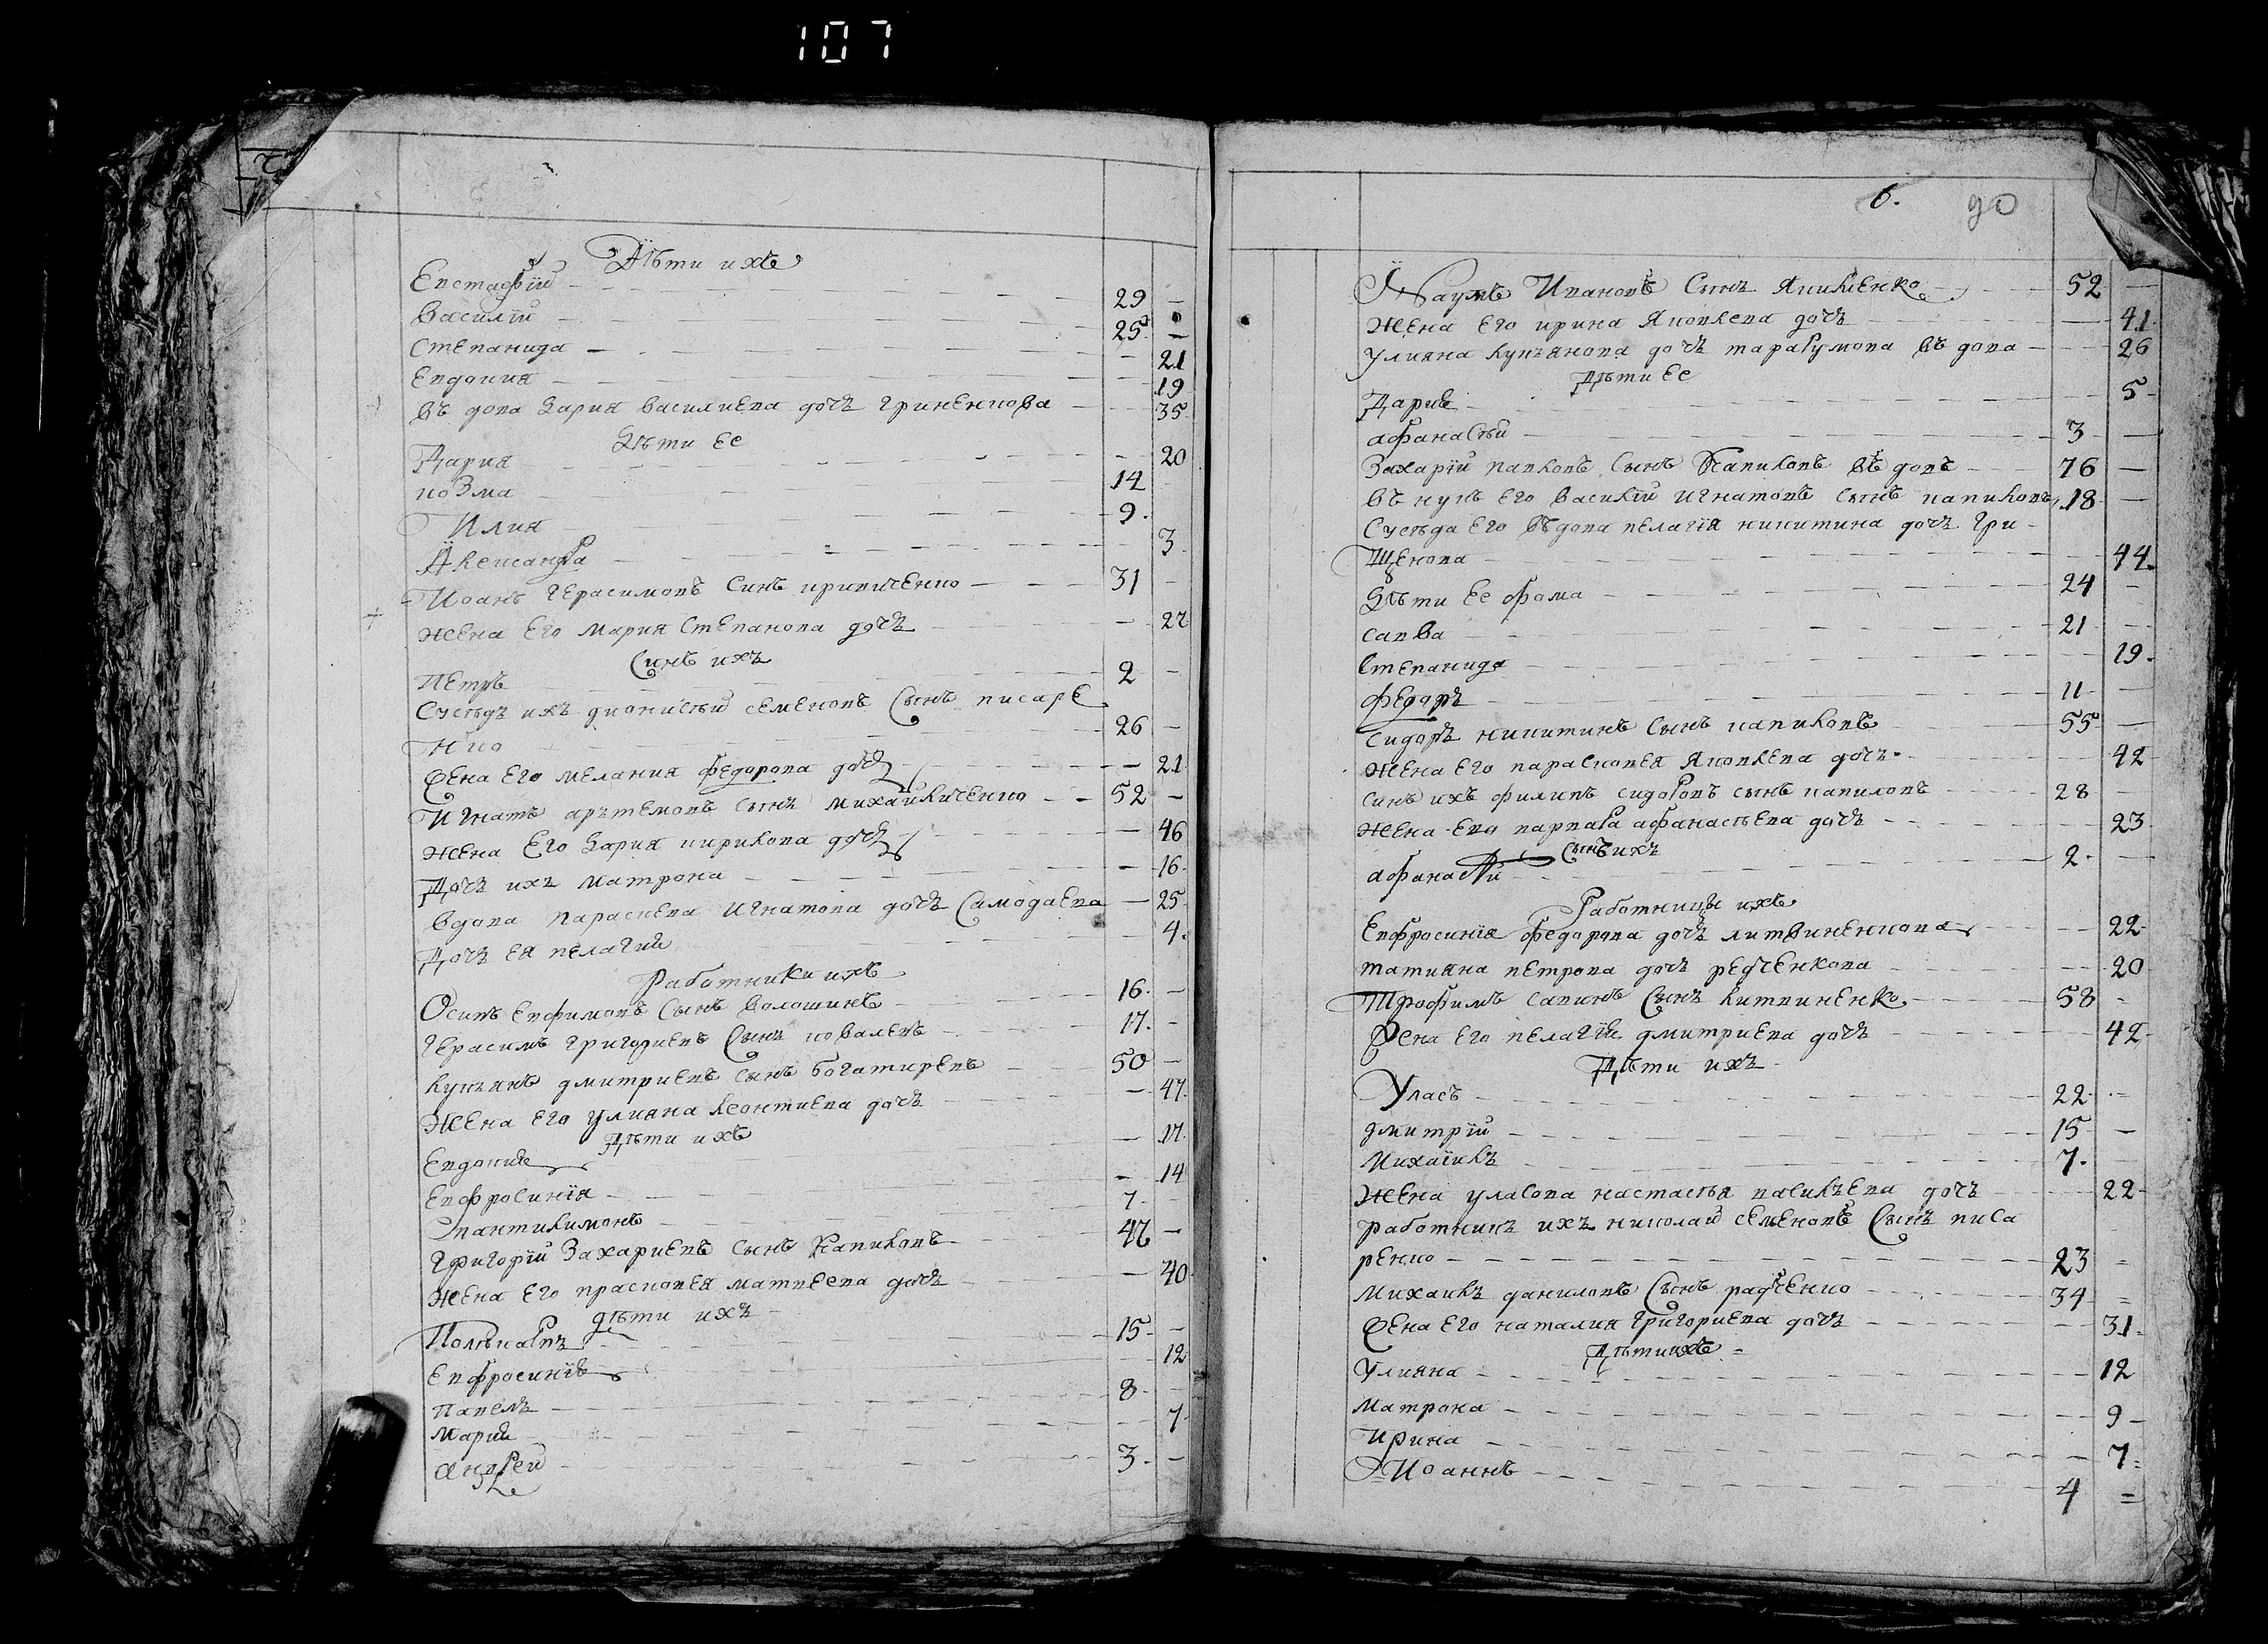 107
Дѣти ихъ
Евстафїй 29 —
Василїй 25 —
Степанида — 21
Евдокия — 19
въ дова Дария василиева дочъ гриненкова — 35
Дѣти Ее
Дария — 20
козма 14
Илия 9
Александра 3
Иоанъ герасимовъ синъ криниченко 31 —
жена Его Мария Степанова дочъ — 22
Синъ ихъ
Петръ 2 —
Сусѣдъ ихъ дионисий семеновъ Сынъ писаре
нко 26 —
Жена Его мелания федорова дочъ — 21
Игнатъ арътемовъ сынъ михайличенко 52 —
жена Его Дария кирилова дочъ — 46
Дочъ ихъ матрона — 16
вдова Параскева игнатова дочъ Самодаева — 25
Дочъ Ея пелагия 4
Работники ихъ
Осипъ Евфимовъ Сынъ волошинъ 16 —
герасимъ григориевъ Сынъ ковалевъ 17 —
лукъянъ дмитриевъ сынъ богатиревъ 50 —
жена Его улияна леонтиева дочъ — 47
Дѣти ихъ
Евдокия — 17
Евфросинїя — 14
пантилимонъ 7
григорїй Захариевъ сынъ Капиловъ 47 —
жена Его прасковея матвеева дочъ — 40
дѣти ихъ
Поликарпъ 15 —
Евфросинїя 12
Павелъ 8
Мария 7
андрей 3 —
6. 90
Наумъ Ивановъ Сынъ Якименко 52 —
жена Его ирина Яковлева дочъ — 41
улияна лукъянова дочъ въ дова — 26
Дѣти Ее
Дария — 5
афанасѣй 3 —
Захарїй павловъ Сынъ Капиловъ въ довъ 76 —
въ нукъ Его василїй игнатовъ сынъ капиловъ 18 —
Сусѣда Его въдова пелагїя никитина дочъ гри
щенкова 44
Дѣти Ее фома 24 —
савва 21 —
Степанида 19
федоръ 11 —
Сидоръ никитинъ Сынъ капиловъ 55 —
жена Его парасковея Яковлева дочъ 42
синъ ихъ филипъ сидоровъ сынъ капиловъ 28 —
жена Его варвара афанасѣева дочъ 23
Сынъ ихъ
афанасѣй 2 —
Работницы ихъ
Евфросинїя федорова дочъ литвиненкова 22
татияна петрова дочъ редченкова — 20
Трофимъ савинъ Сынъ литвиненко 58 —
Жена Его пелагїя дмитриева дочъ 42
Дѣти ихъ
Уласъ 22 —
дмитрїй 15 —
Михаїилъ 7 —
жена уласова настасѣя василъева дочъ 22
работникъ ихъ николай семеновъ Сынъ писа
ренко 23 —
михаилъ даниловъ Сынъ радченко 34 =
Жена Его наталия григориева дочъ 31
Дѣти ихъ
Улияна — 12
матрона — 9
Ирина — 7
Иоаннъ 4 =